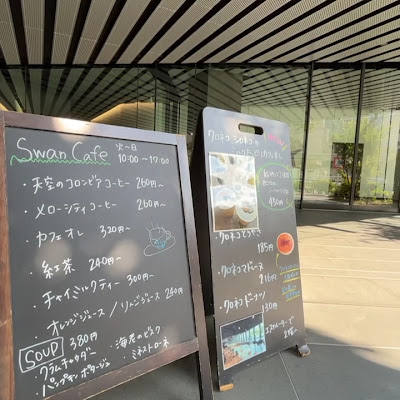 Swan Cafe
火〜日
10:00〜17:00
・天空のコロンビアコーヒー 260円〜
・メローシティコーヒー 260円〜
・カフェオレ 320円〜
・紅茶 240円〜
・チャイミルクティー 300円〜
・オレンジジュース/りんごジュース 240円
SOUP 380円
・クラムチャウダー
・海老のビスク
・パンプキンポタージュ
・ミネストローネ
クロネコ シロネコ
430円
・クロネコどらやき
185円
・クロネコマドレーヌ
216円
・クロネコドーナツ
130円